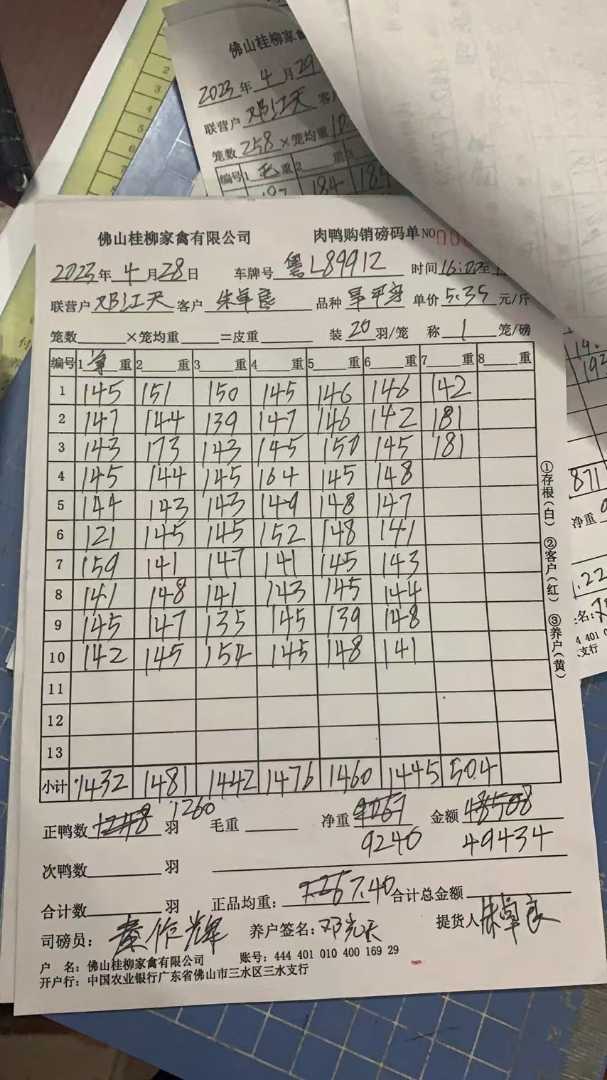 佛山桂柳家禽
2023年4月29
联营户 邓江天 客户
笼数 258 ×笼均重 10
编号 1 毛 重 2
184 184
佛山桂柳家禽有限公司 肉鸭购销磅码单 NO 000
2023年4月28日 车牌号 粤L89912 时间 16:00至
联营户 邓江天 客户 朱卓良 品种 单价 5.35 元/斤
笼数 ×笼均重 =皮重 装 20 羽/笼 称 1 笼/磅
编号 1 重 2 重 3 重 4 重 5 重 6 重 7 重 8 重
1 145 151 150 145 146 146 142
2 147 144 139 147 146 142 181
3 143 173 143 145 150 145 181
4 145 144 145 164 145 148
5 144 143 143 149 148 147
6 121 145 145 152 148 141
7 159 141 147 141 145 143
8 141 148 141 143 145 144
9 145 147 135 145 139 148
10 142 145 154 145 148 141
11
12
13
小计 1432 1481 1442 1476 1460 1445 504
①存根(白) ②客户(红) ③养户(黄)
正鸭数 1248 1260 羽 毛重 净重 9240 金额 48508 49434
次鸭数 羽
合计数 羽 正品均重: 7.40 合计总金额
司磅员: 黄作辉 养户签名: 邓光天 提货人 朱卓良
户 名: 佛山桂柳家禽有限公司 账号: 444 401 010 400 169 29
开户行: 中国农业银行广东省佛山市三水区三水支行
192
871
净重
.22
名:
4 401 0
支行